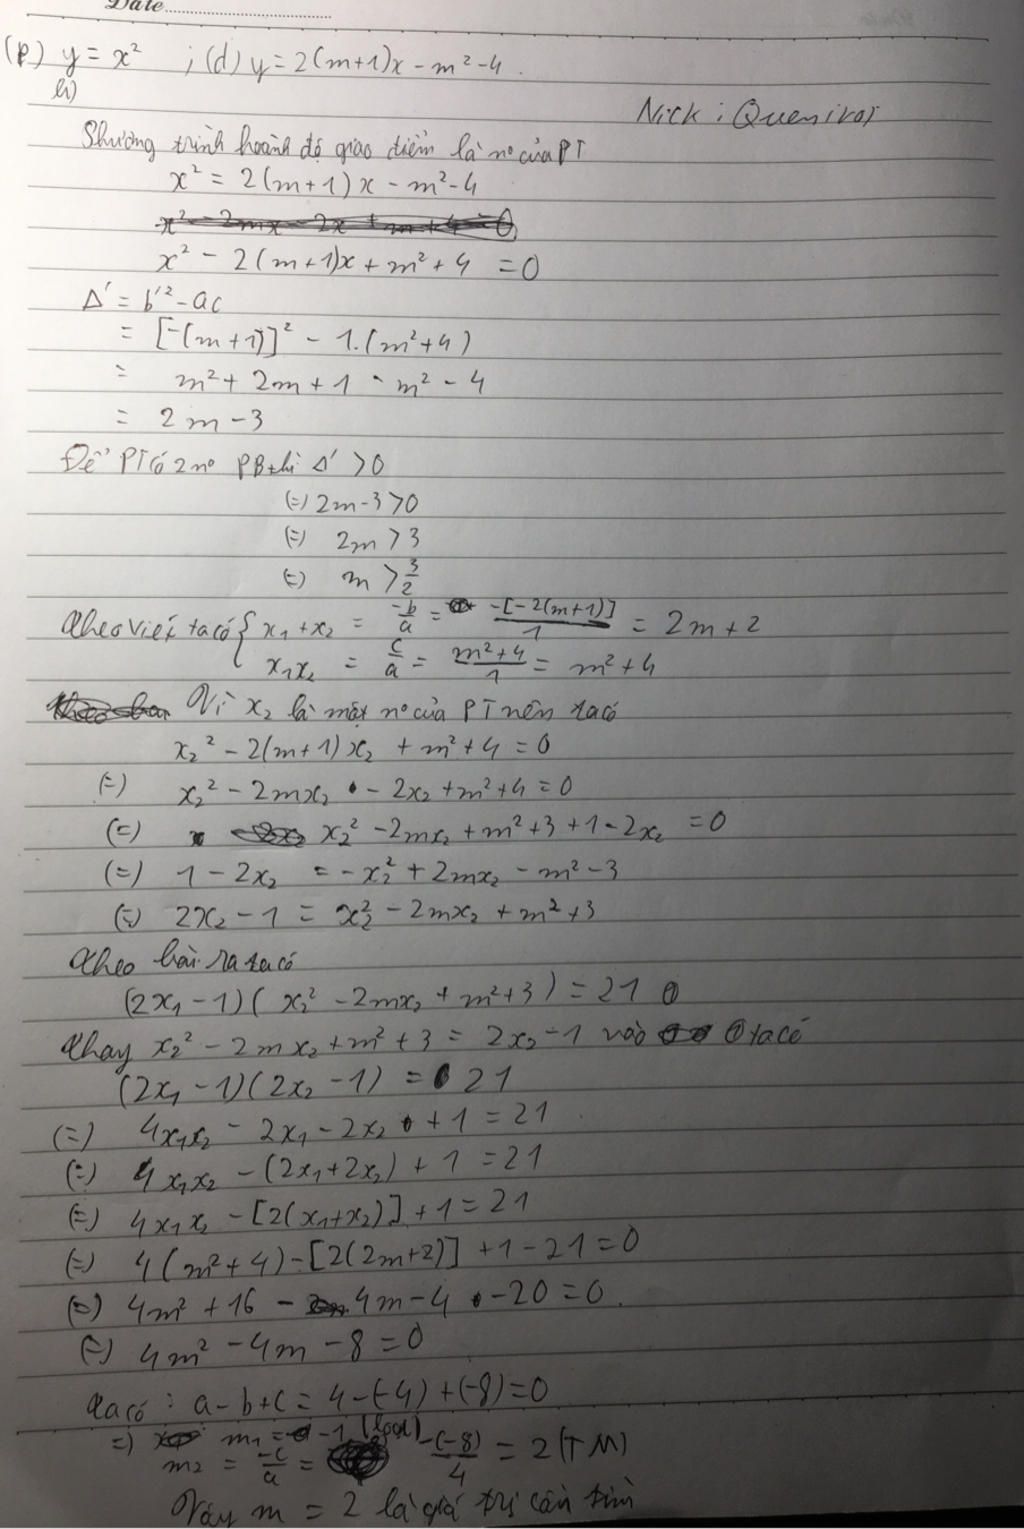 Date
(P) y = x² ; (d) y = 2(m+1)x - m² - 4.
b)
Nick : Quenivoi
Phương trình hoành độ giao điểm là nº của PT
x² = 2(m+1)x - m² - 4
x² - 2mx - 2x + m + 4 = 0
x² - 2(m+1)x + m² + 4 = 0
Δ' = b'² - ac
= [-(m+1)]² - 1.(m²+4)
= m² + 2m + 1 - m² - 4
= 2m - 3
Để PT có 2 nº PB thì Δ' > 0
(=) 2m - 3 > 0
(=) 2m > 3
(=) m > 3/2
Theo Viét ta có { x₁ + x₂ = -b/a = -[-2(m+1)]/1 = 2m + 2
x₁x₂ = c/a = (m²+4)/1 = m² + 4
Vì x₂ là một nº của PT nên ta có
x₂² - 2(m+1)x₂ + m² + 4 = 0
(=) x₂² - 2mx₂ - 2x₂ + m² + 4 = 0
(=) x₂² - 2mx₂ + m² + 3 + 1 - 2x₂ = 0
(=) 1 - 2x₂ = -x₂² + 2mx₂ - m² - 3
(=) 2x₂ - 1 = x₂² - 2mx₂ + m² + 3
Theo bài ra ta có
(2x₁ - 1)(x₂² - 2mx₂ + m² + 3) = 21 ①
Thay x₂² - 2mx₂ + m² + 3 = 2x₂ - 1 vào ① ta có
(2x₁ - 1)(2x₂ - 1) = 21
(=) 4x₁x₂ - 2x₁ - 2x₂ + 1 = 21
(=) 4x₁x₂ - (2x₁ + 2x₂) + 1 = 21
(=) 4x₁x₂ - [2(x₁+x₂)] + 1 = 21
(=) 4(m²+4) - [2(2m+2)] + 1 - 21 = 0
(=) 4m² + 16 - 4m - 4 - 20 = 0.
(=) 4m² - 4m - 8 = 0
Ta có : a - b + c = 4 - (-4) + (-8) = 0
=) m₁ = -1 (loại)
m₂ = -c/a = -(-8)/4 = 2 (TM)
Vậy m = 2 là giá trị cần tìm